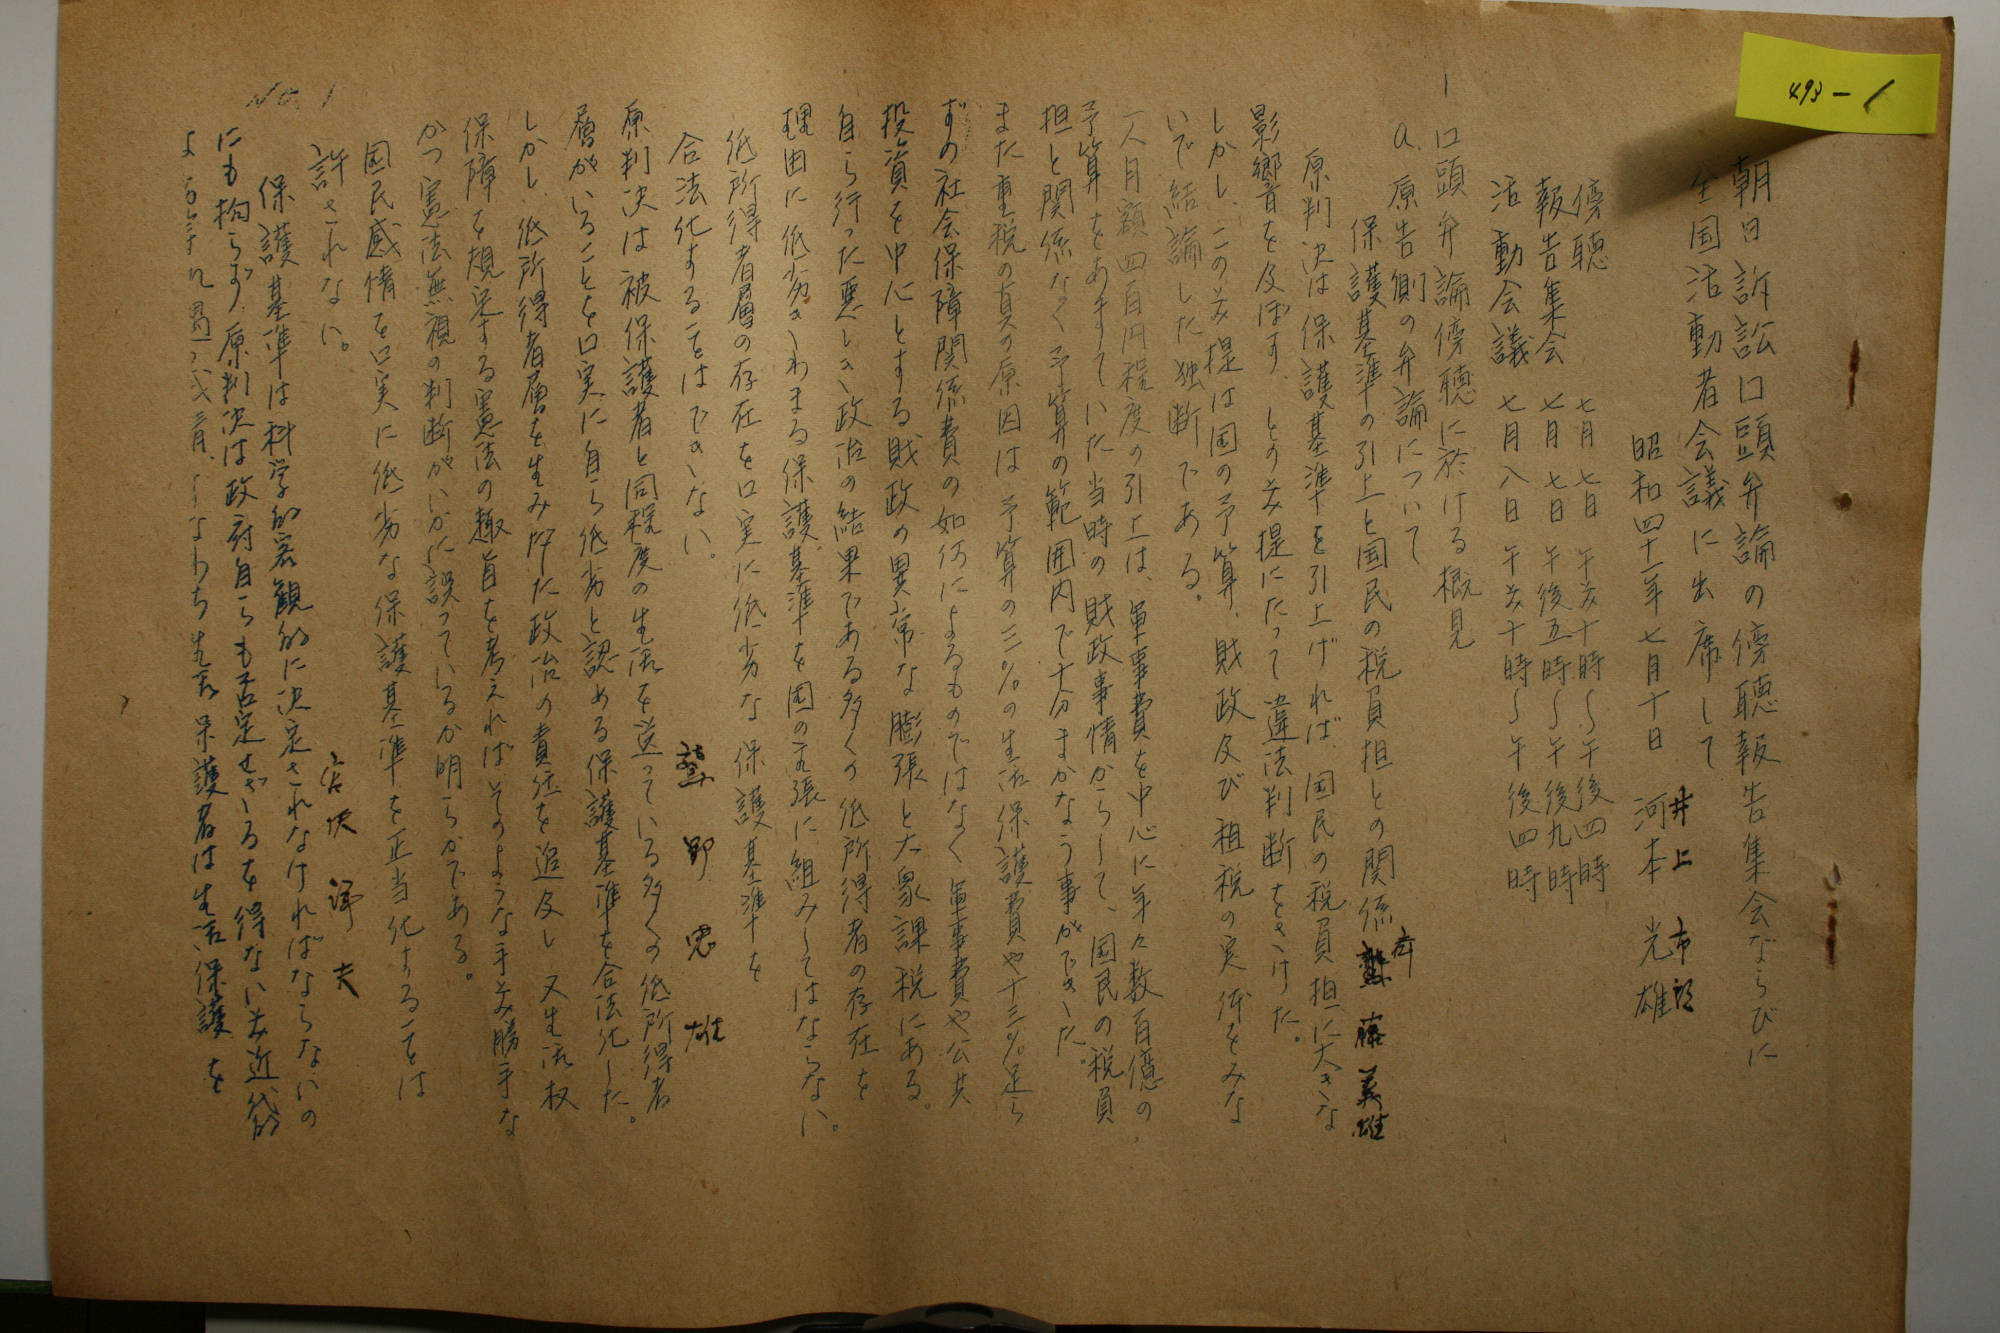 493-1
朝日訴訟口頭弁論の傍聴報告集会ならびに
全国活動者会議に出席して
井上市郎
昭和四十一年七月十日 河本光雄
傍聴 七月七日 午前十時〜午後四時
報告集会 七月七日 午後五時〜午後九時
活動会議 七月八日 午前十時〜午後四時
1
口頭弁論傍聴に於ける概見
a.原告側の弁論について
保護基準の引上と国民の税負担との関係 藤義雄
原判決は保護基準を引上げれば、国民の税負担に大きな
影響を及ぼす、との前提にたって違法判断をさけた。
しかし、この前提は国の予算、財政及び租税の実体をみな
いで結論した独断である。
一人月額四百円程度の引上は、軍事費を中心に年々数百億の
予算をあましていた当時の財政事情からして、国民の税負
担と関係なく予算の範囲内で十分まかなう事ができた。
また重税の真の原因は予算の三%の生活保護費や十三%足ら
ずの社会保障関係費の如何によるものではなく軍事費や公共
投資を中心とする財政の異常な膨張と大衆課税にある。
自ら行った悪しき政治の結果である多くの低所得者の存在を
理由に低劣きわまる保護基準を国の主張に組みしてはならない。
低所得者層の存在を口実に低劣な保護基準を
合法化することはできない。 鷲野忠雄
原判決は被保護者と同程度の生活を送っている多くの低所得者
層がいることを口実に自ら低劣と認める保護基準を合法化した。
しかし、低所得者層を生み出した政治の責任を追及し又生活权
保障を規定する憲法の趣旨を考えればそのような手前勝手な
かつ憲法無視の判断がいかに誤っているか明らかである。
国民感情を口実に低劣な保護基準を正当化することは
許されない。
夫
保護基準は科学的客観的に決定されなければならないの
にも拘らず、原判決は政府自らも否定せざるを得ない前近代的
すなわち生活保護者は生活保護を
No.1